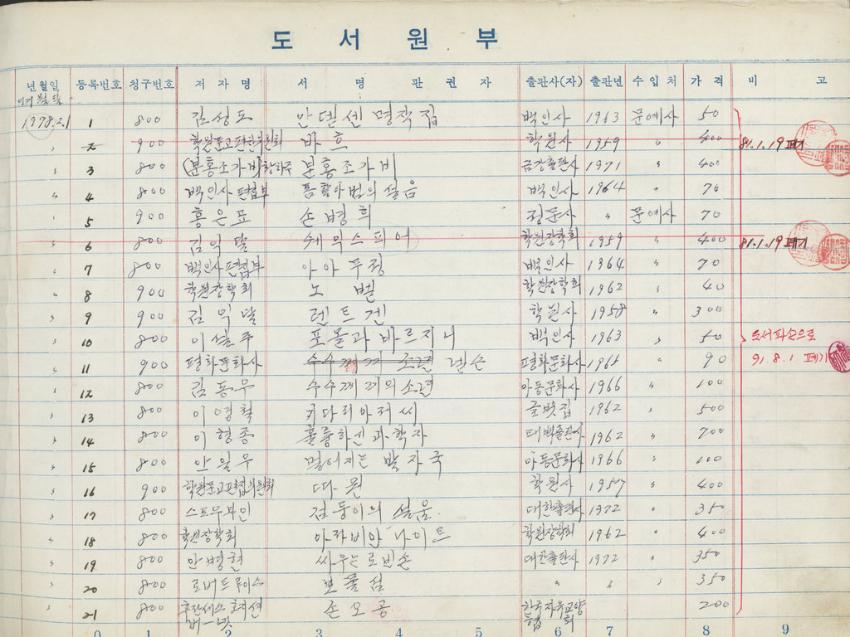 도 서 원 부
년월일 등록번호 청구번호 저 자 명 서 명 판 권 자 출판사(자) 출판년 수 입 처 가 격 비 고
1978. 2. 1 1 800 김성도 안델센 명작집 백인사 1963 문예사 50
2 900 바흐 학원사 1959 〃 400 81.1.19 폐기
3 800 (분홍조가비) 분홍조가비 금강출판사 1971 〃 400
4 800 백인사 편집부 톰 아저씨의 설움 백인사 1964 〃 70
5 900 홍은표 손병희 정문사 〃 문예사 70
6 800 김익달 세익스피어 학원장학회 1959 〃 400 81.1.19 폐기
7 800 백인사 편집부 아아 무정 백인사 1964 〃 70
8 900 학원장학회 노벨 학원장학회 1962 〃 40
9 900 김익달 렌트겐 학원사 1958 〃 300
10 800 이설주 포올과 바르지니 백인사 1963 〃 50 도서파손으로
11 900 평화문화사 수수께끼 소년 넬슨 평화문화사 1965 〃 90 91.8.1 폐기
12 800 김동우 수수께끼의 소년 아동문화사 1966 〃 100
13 800 이영철 키다리 아저씨 글벗집 1962 〃 500
14 800 이형종 훌륭하신 과학자 대백출판사 1962 〃 700
15 800 안일우 멀어지는 발자국 아동문화사 1966 〃 100
16 900 학원문고편집위원회 다윈 학원사 1957 〃 400
17 800 스트우부인 검둥이의 설움 대한출판사 1972 〃 350
18 800 학원장학회 아라비안 나이트 학원장학회 1962 〃 400
19 800 안병현 싸우는 로빈손 대한출판사 1972 〃 350
20 800 로버트 루이스 보물섬 〃 〃 〃 350
21 800 손오공 200
0 1 2 3 4 5 6 7 8 9